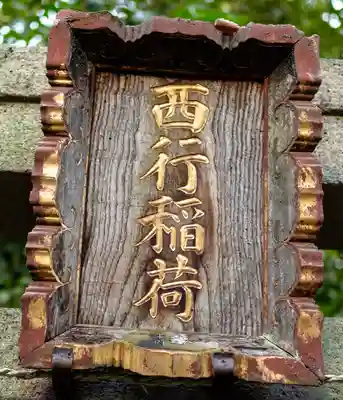 西行稲荷